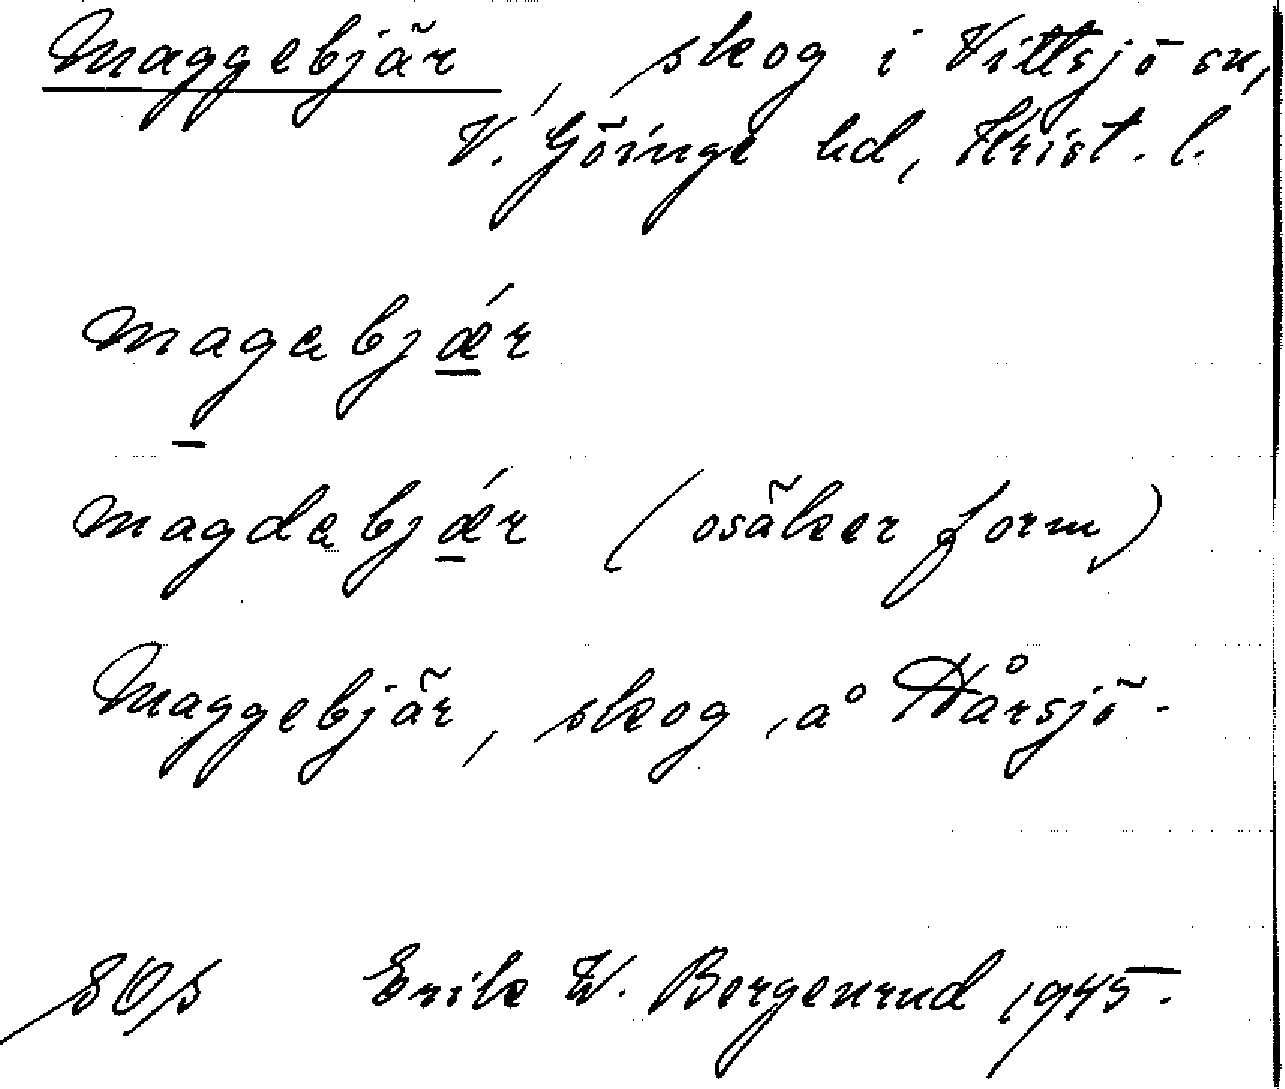 Maggebjär, skog i Vittsjö sn,
V. Göinge hd, Krist. l.
magabjǽr
magdabjǽr (osäker form)
Maggebjär, skog, å Hårsjö.
Erik W. Borgenrud 1945.